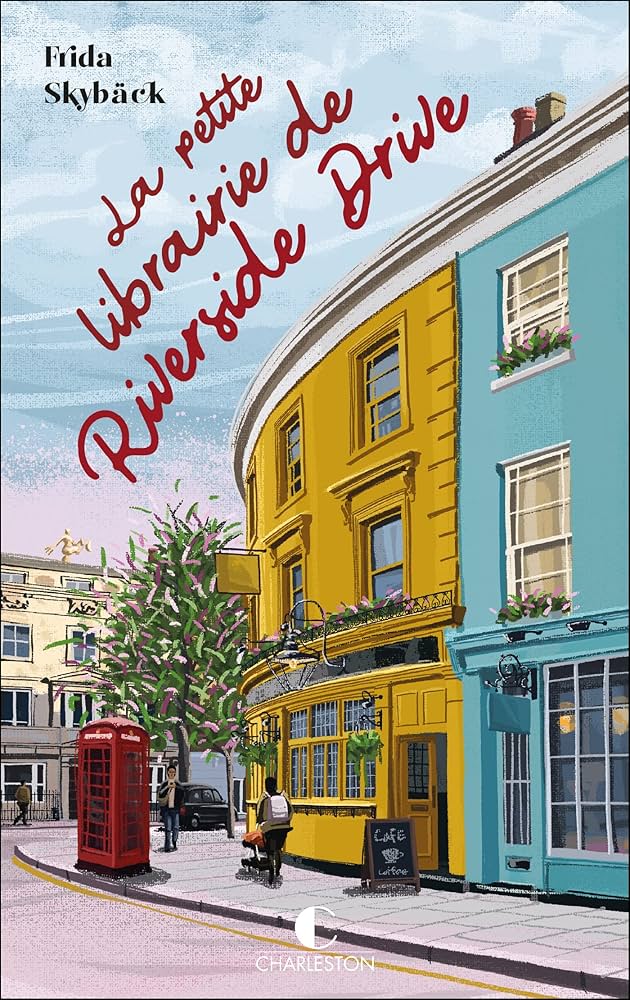 Frida
Skybäck
La petite
librairie de
Riverside Drive
CAFE
Coffee
C
CHARLESTON